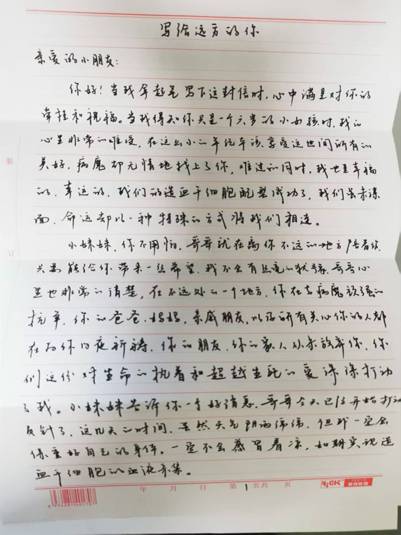 写给远方的你
亲爱的小朋友:
你好!当我拿起笔写下这封信时,心中满是对你的
牵挂和祝福。当我得知你只是一个六岁的小女孩时,我的
心是非常的难受,在这幺小的年纪本该享受这世间所有的
美好,病魔却无情地找上了你。难过的同时,我也是幸福
的、幸运的,我们的造血干细胞配型成功了,我们虽未谋
面,命运却以一种特殊的方式将我们相连。
小妹妹,你不用怕,哥哥就在离你不远的地方陪着你
只要能给你带来一丝希望,我不会有丝毫的犹豫,哥哥心
里也非常的清楚,在不远处的一个地方,你在与病魔顽强的
抗争,你的爸爸、妈妈,亲戚朋友,以及所有关心你的人都
在为你日夜祈祷,你的朋友,你的家人从未放弃你,你
们这份对生命的执着和超越生死的爱深深打动
了我。小妹妹告诉你一个好消息,哥哥今天已经开始打动
员针了,这几天的时间,虽然天气阴雨绵绵,但我一定会
保重好自己的身体,一定不会感冒着凉,如期实现造
血干细胞的
年 月 日 第1页共 页